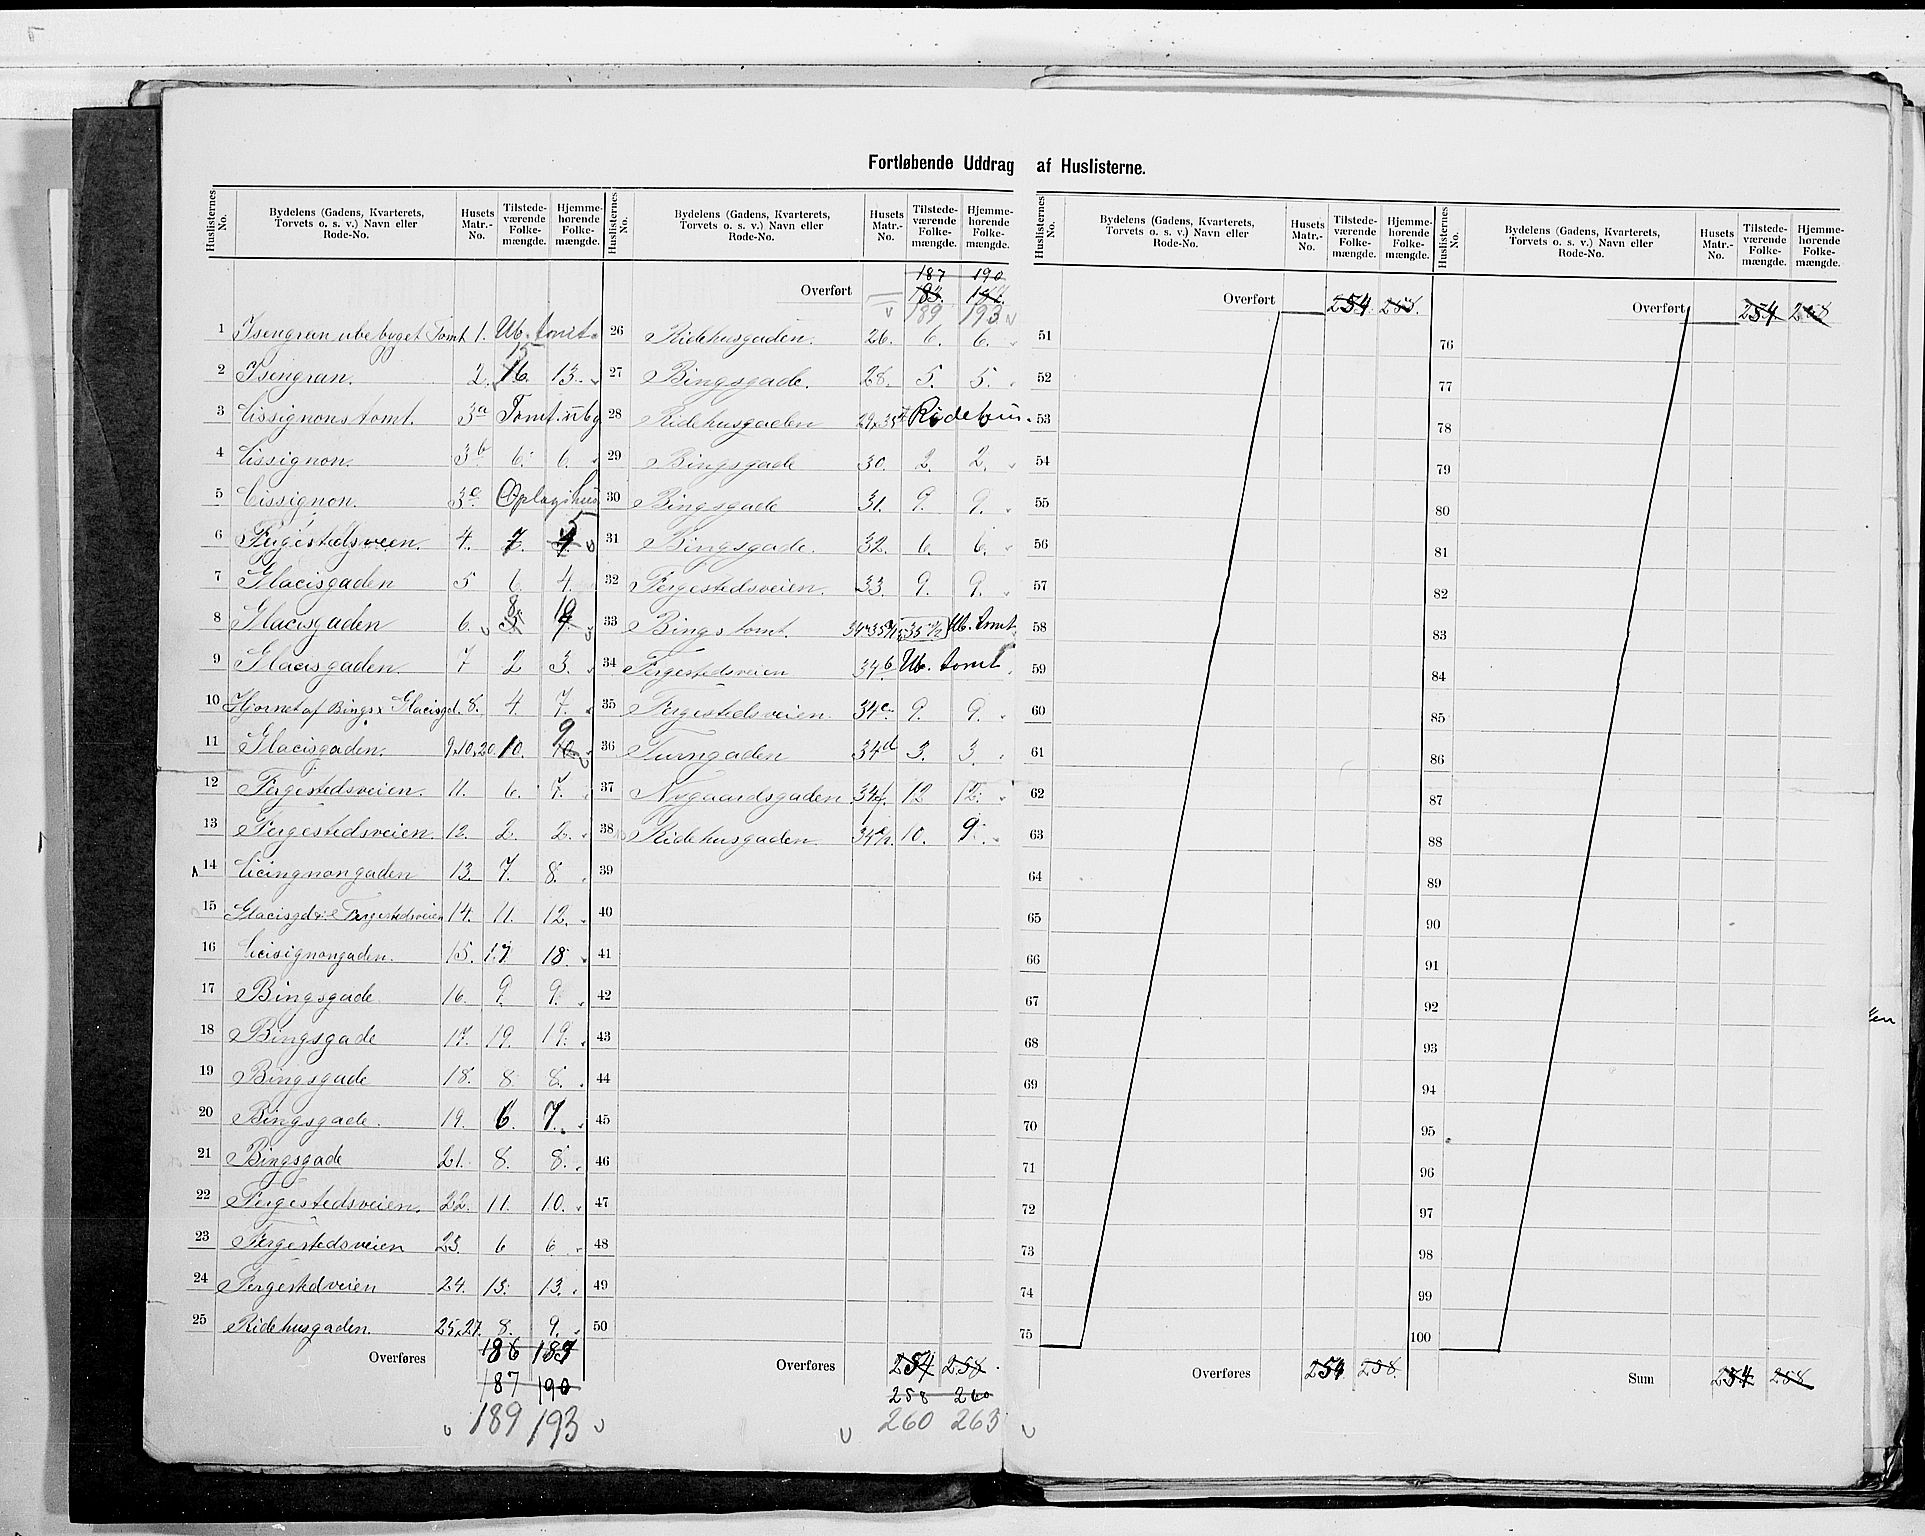 Fortløbende Uddrag af Huslisterne.
Huslisternes No. Bydelens (Gadens, Kvarterets, Torvets o. s. v.) Navn eller Rode-No. Husets Matr.-No. Tilstedeværende Folkemængde. Hjemmehørende Folkemængde.
1 Isengran ubebyget Tomt 1. Ub. tomt
2 Isengran. 2. 16. 15 13.
3 Cissignons tomt. 3a Tomt. ubg
4 Cissignon. 3b 6. 6.
5 Cissignon. 3c Oplagshus
6 Fergestedsveien. 4. 7. 5
7 Glacisgaden 5 6. 4.
8 Glacisgaden 6. 8. 10
9 Glacisgaden. 7 2 3.
10 Hjørnet af Bings x Glacisgd. 8. 4. 7.
11 Glacisgaden. 9.10.20. 10. 10. 9
12 Fergestedsveien. 11. 6. 7.
13 Fergestedsveien. 12. 2. 2.
14 Cicingnongaden 13. 7. 8.
15 Glacisgd & Fergestedsveien 14. 11. 12.
16 Cicisignongaden. 15. 17 18
17 Bingsgade 16. 9. 9.
18 Bingsgade 17. 19. 19.
19 Bingsgade 18. 8. 8.
20 Bingsgade. 19. 6. 7.
21 Bingsgade 21. 8. 8.
22 Fergestedsveien. 22. 11. 10.
23 Fergestedsveien 23. 6 6
24 Fergestedveien 24. 13. 13.
25 Ridehusgaden. 25.27. 8. 9.
Overføres 186 187
187 190
189 193
Huslisternes No. Bydelens (Gadens, Kvarterets, Torvets o. s. v.) Navn eller Rode-No. Husets Matr.-No. Tilstedeværende Folkemængde. Hjemmehørende Folkemængde.
187 190
Overført
189 193
26 Ridehusgaden. 26. 6. 6.
27 Bingsgade. 28. 5. 5.
28 Ridehusgaden Ridehus
29 Bingsgade 30. 2. 2.
30 Bingsgade 31. 9. 9.
31 Bingsgade. 32. 6. 6.
32 Fergestedsveien. 33. 9. 9.
33 Bings tomt. Ub. tomt
34 Fergestedsveien 34b Ub. tomt
35 Fergestedsveien. 34c. 9. 9.
36 Turngaden 34d 3. 3.
37 Nygaardsgaden 34f. 12 12.
38 Ridehusgaden. 10. 9.
39
40
41
42
43
44
45
46
47
48
49
50
Overføres 254 258
258 260
260 263
Huslisternes No. Bydelens (Gadens, Kvarterets, Torvets o. s. v.) Navn eller Rode-No. Husets Matr.-No. Tilstedeværende Folkemængde. Hjemmehørende Folkemængde.
Overført 254 258.
51
52
53
54
55
56
57
58
59
60
61
62
63
64
65
66
67
68
69
70
71
72
73
74
75
Overføres 254 258.
Huslisternes No. Bydelens (Gadens, Kvarterets, Torvets o. s. v.) Navn eller Rode-No. Husets Matr.-No. Tilstedeværende Folkemængde. Hjemmehørende Folkemængde.
Overført 254 258
76
77
78
79
80
81
82
83
84
85
86
87
88
89
90
91
92
93
94
95
96
97
98
99
100
Sum 254 258